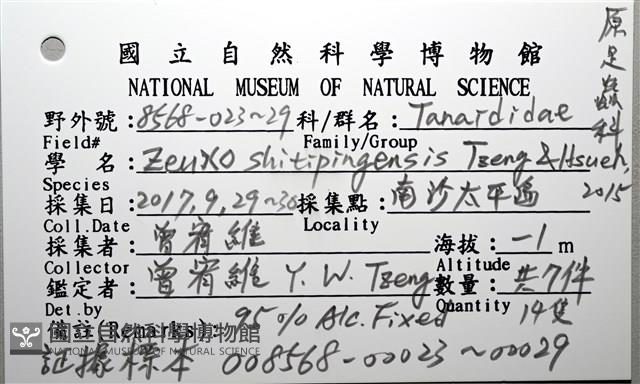 國立自然科學博物館
NATIONAL MUSEUM OF NATURAL SCIENCE
原足蟲科
野外號：8568-023~29 科/群名：Tanaididae
Field# Family/Group
學名：Zeuxo shitipingensis Tzeng & Hsueh, 2015
Species
採集日：2017,9,29~30 採集點：南沙太平島
Coll.Date Locality
採集者：曾宥維 海拔：-1 m
Collector Altitude
鑑定者：曾宥維 Y. W. Tzeng 數量：共7件
Det.by Quantity 14隻
備註(Remarks)： 95% Alc. Fixed
國立自然科學博物館
NATIONAL MUSEUM OF NATURAL SCIENCE
証據標本 008568-00023~00029